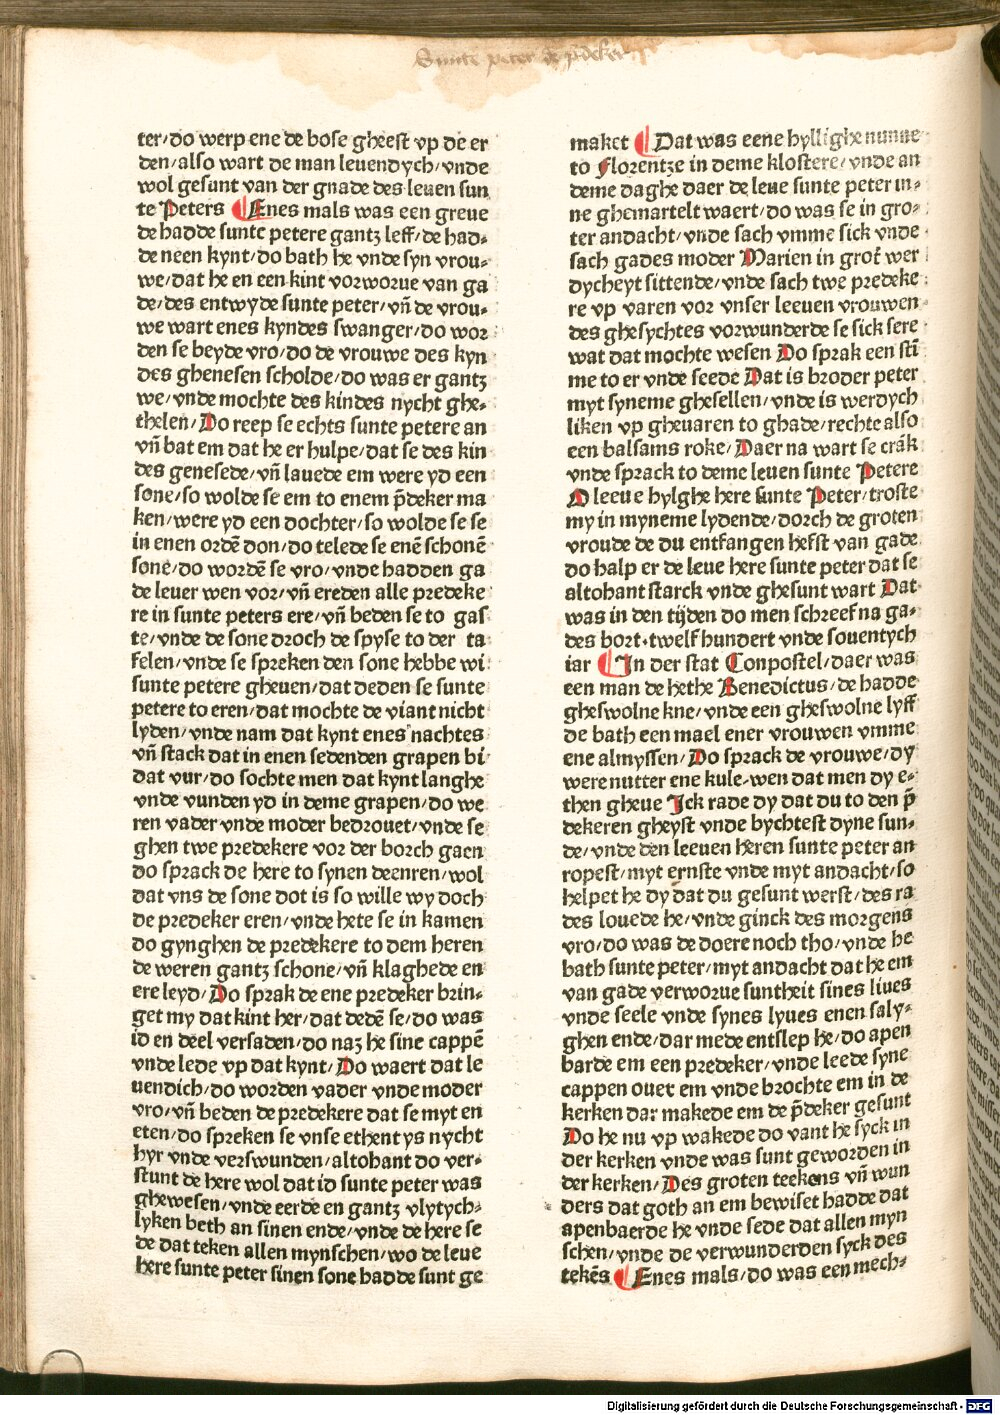 Sunte peter de p̄deker
ter/do werp ene de bose gheest vp de er
den/also wart de man leuendych/vnde
wol gesunt van der gnade des leuen sun
te Peters ¶ Enes mals was een greue
de hadde sunte petere gantz leff/de had⸗
de neen kynt/do bath he vnde syn vrou⸗
we/dat he en een kint vorworue van ga
de/des entwyde sunte peter/vn̄ de vrou⸗
we wart enes kyndes swanger/do wor
den se beyde vro/do de vrouwe des kyn
des ghenesen scholde/do was er gantz
we/vnde mochte des kindes nycht ghe⸗
thelen/Do reep se echts sunte petere an
vn̄ bat em dat he er hulpe/dat se des kin
des genesede/vn̄ lauede em were yd een
sone/so wolde se em to enem p̄deker ma
ken/were yd een dochter/so wolde se se
in enen ordē don/do telede se enē schonē
sone/do wordē se vro/vnde hadden ga
de leuer wen vor/vn̄ ereden alle predeke
re in sunte peters ere/vn̄ beden se to gas
te/vnde de sone droch de spyse to der ta
felen/vnde se spreken den sone hebbe wi
sunte petere gheuen/dat deden se sunte
petere to eren/dat mochte de viant nicht
lyden/vnde nam dat kynt enes nachtes
vn̄ stack dat in enen sedenden grapen bi
dat vur/do sochte men dat kynt langhe
vnde vunden yd in deme grapen/do we
ren vader vnde moder bedrouet/vnde se
ghen twe predekere vor der borch gaen
do sprack de here to synen deenren/wol
dat vns de sone dot is so wille wy doch
de predeker eren/vnde hete se in kamen
do gynghen de predekere to dem heren
de weren gantz schone/vn̄ klaghede en
ere leyd/Do sprak de ene predeker brin⸗
get my dat kint her/dat dedē se/do was
id en deel versaden/do naz he sine cappē
vnde lede vp dat kynt/Do waert dat le
uendich/do worden vader vnde moder
vro/vn̄ beden de predekere dat se myt en
eten/do spreken se vnse ethent ys nycht
hyr vnde verswunden/altohant do ver⸗
stunt de here wol dat id sunte peter was
ghewesen/vnde eerde en gantz vlytych⸗
lyken beth an sinen ende/vnde de here se
de dat teken allen mynschen/wo de leue
here sunte peter sinen sone hadde sunt ge
maket ¶ Dat was eene hyllighe nunne
to Florentze in deme klostere/vnde an
deme daghe daer de leue sunte peter in⸗
ne ghemartelt waert/do was se in gro⸗
ter andacht/vnde sach vmme sick vnde
sach gades moder Marien in grot̄ wer
dycheyt sittende/vnde sach twe predeke
re vp varen vor vnser leeuen vrouwen
des ghesychtes vorwunderde se sick sere
wat dat mochte wesen Do sprak een stī
me to er vnde seede Dat is broder peter
myt syneme ghesellen/vnde is werdych
liken vp gheuaren to ghade/rechte also
een balsams roke/Daer na wart se crāk
vnde sprack to deme leuen sunte Petere
O leeue hylghe here sunte Peter/troste
my in myneme lydende/dorch de groten
vroude de du entfangen hefst van gade
do halp er de leue here sunte peter dat se
altohant starck vnde ghesunt wart Dat
was in den tijden do men schreef na ga⸗
des bort·twelf hundert vnde souentych
iar ¶ In der stat Conpostel/daer was
een man de hethe Benedictus/de hadde
gheswolne kne/vnde een gheswolne lyff
de bath een mael ener vrouwen vmme
ene almyssen/Do sprack de vrouwe/dy
were nutter ene kule⸗wen dat men dy e⸗
then gheue Ick rade dy dat du to den p̄
dekeren gheyst vnde bychtest dyne sun⸗
de/vnde den leeuen heren sunte peter an
ropest/myt ernste vnde myt andacht/so
helpet he dy dat du gesunt werst/des ra
des louede he/vnde ginck des morgens
vro/do was de doere noch tho/vnde he
bath sunte peter/myt andacht dat he em
van gade verworue suntheit sines liues
vnde seele vnde synes lyues enen saly⸗
ghen ende/dar mede entslep he/do apen
barde em een predeker/vnde leede syne
cappen ouer em vnde brochte em in de
kerken dar makede em de p̄deker gesunt
Do he nu vp wakede do vant he syck in
der kerken vnde was sunt geworden in
der kerken/Des groten teekens vn̄ wun
ders dat goth an em bewiset hadde dat
apenbaerde he vnde sede dat allen myn
schen/vnde de verwunderden syck des
tekēs ¶ Enes mals/do was een mech⸗
Digitalisierung gefördert durch die Deutsche Forschungsgemeinschaft - DFG